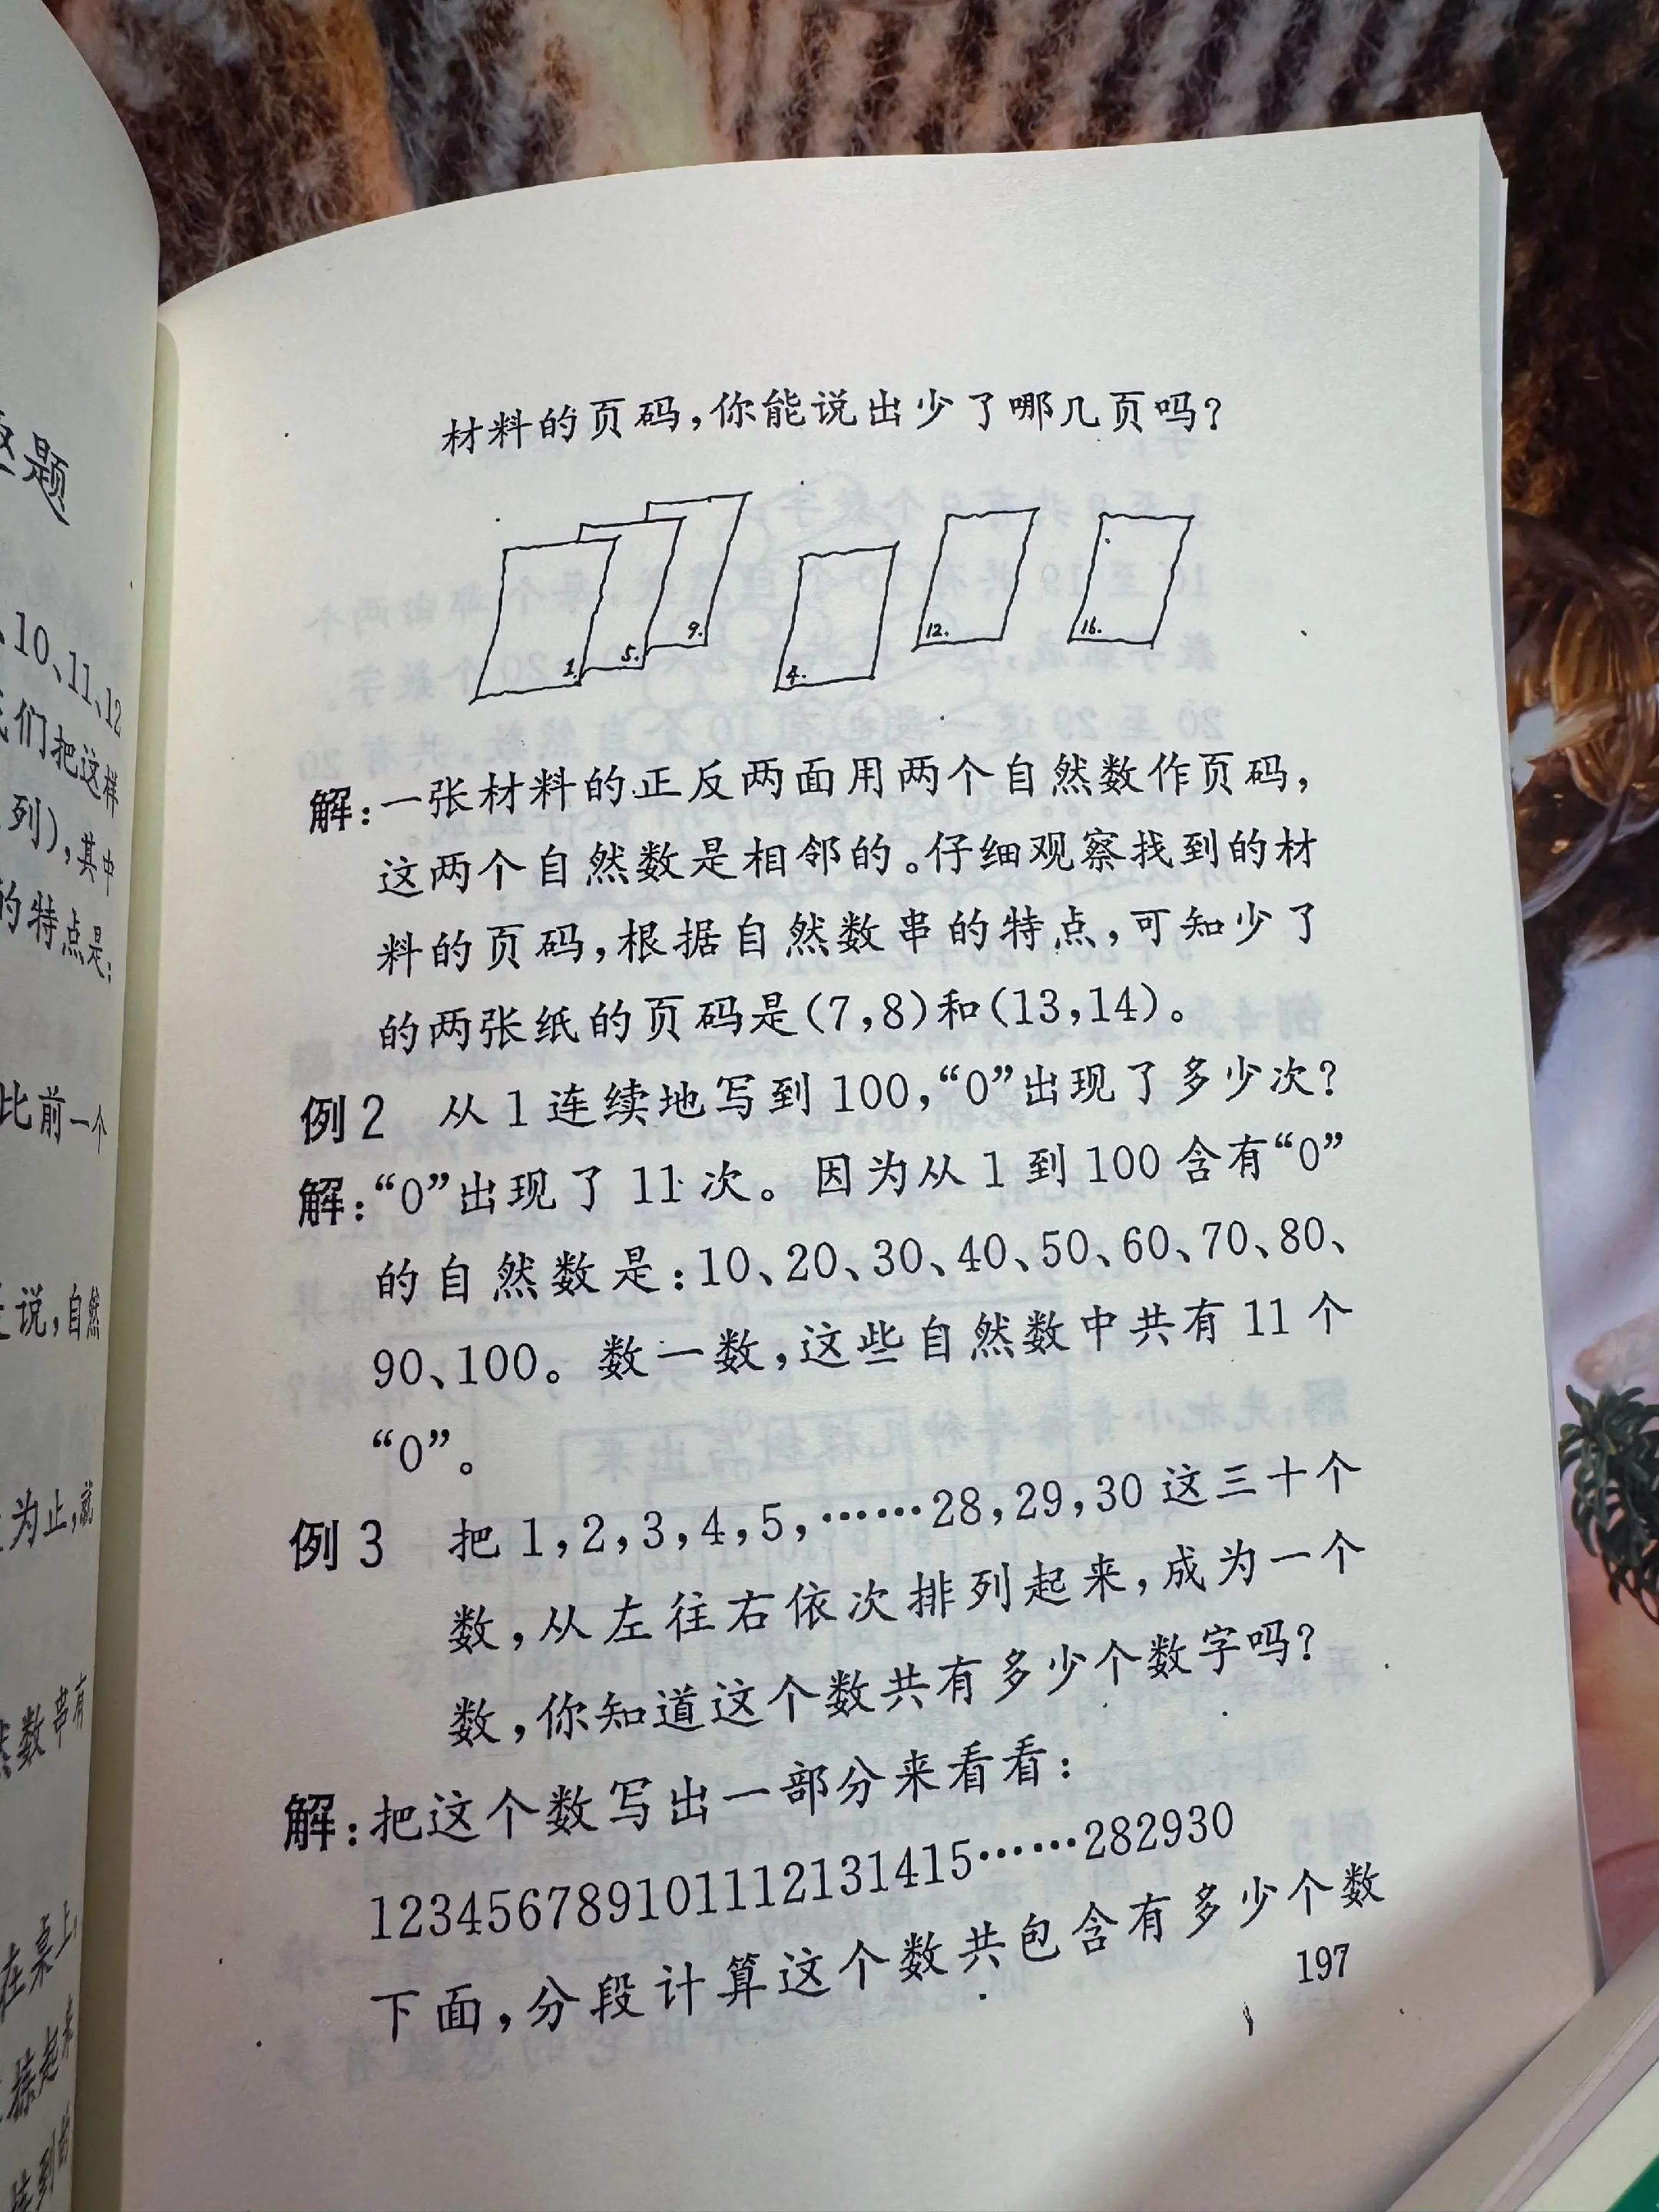 趣题
、10、11、12
们把这样
列),其中
的特点是:
比前一个
说,自然
为止,就
数串有
在桌上,
材料的页码,你能说出少了哪几页吗?
1. 5. 9. 4. 12. 16.
解:一张材料的正反两面用两个自然数作页码,
这两个自然数是相邻的。仔细观察找到的材
料的页码,根据自然数串的特点,可知少了
的两张纸的页码是(7,8)和(13,14)。
例2 从1连续地写到100,“0”出现了多少次?
解:“0”出现了11次。因为从1到100含有“0”
的自然数是:10、20、30、40、50、60、70、80、
90、100。数一数,这些自然数中共有11个
“0”。
例3 把1,2,3,4,5,……28,29,30这三十个
数,从左往右依次排列起来,成为一个
数,你知道这个数共有多少个数字吗?
解:把这个数写出一部分来看看:
123456789101112131415……282930
下面,分段计算这个数共包含有多少个数
197